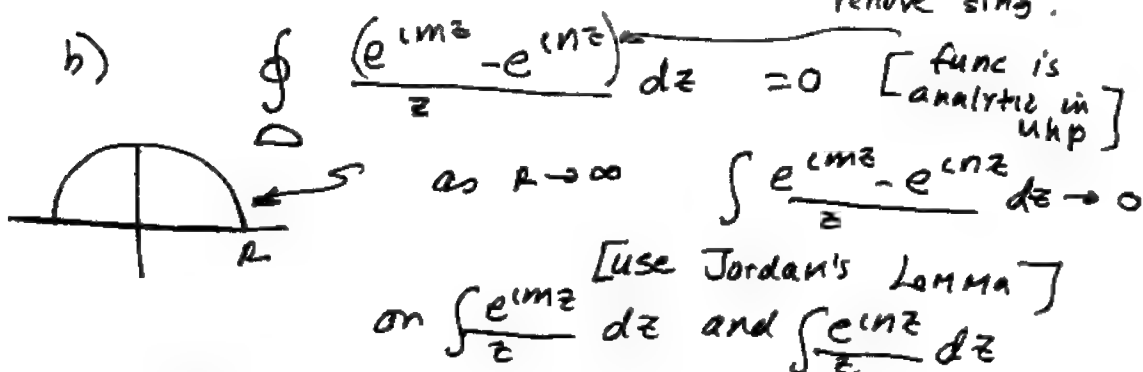 remove sing.
b) ∮ (e^{imz} - e^{inz})/z dz = 0 [func is analytic in uhp]
R
as R → ∞ ∫ (e^{imz} - e^{inz})/z dz → 0
[use Jordan's Lemma]
on ∫ e^{imz}/z dz and ∫ e^{inz}/z dz